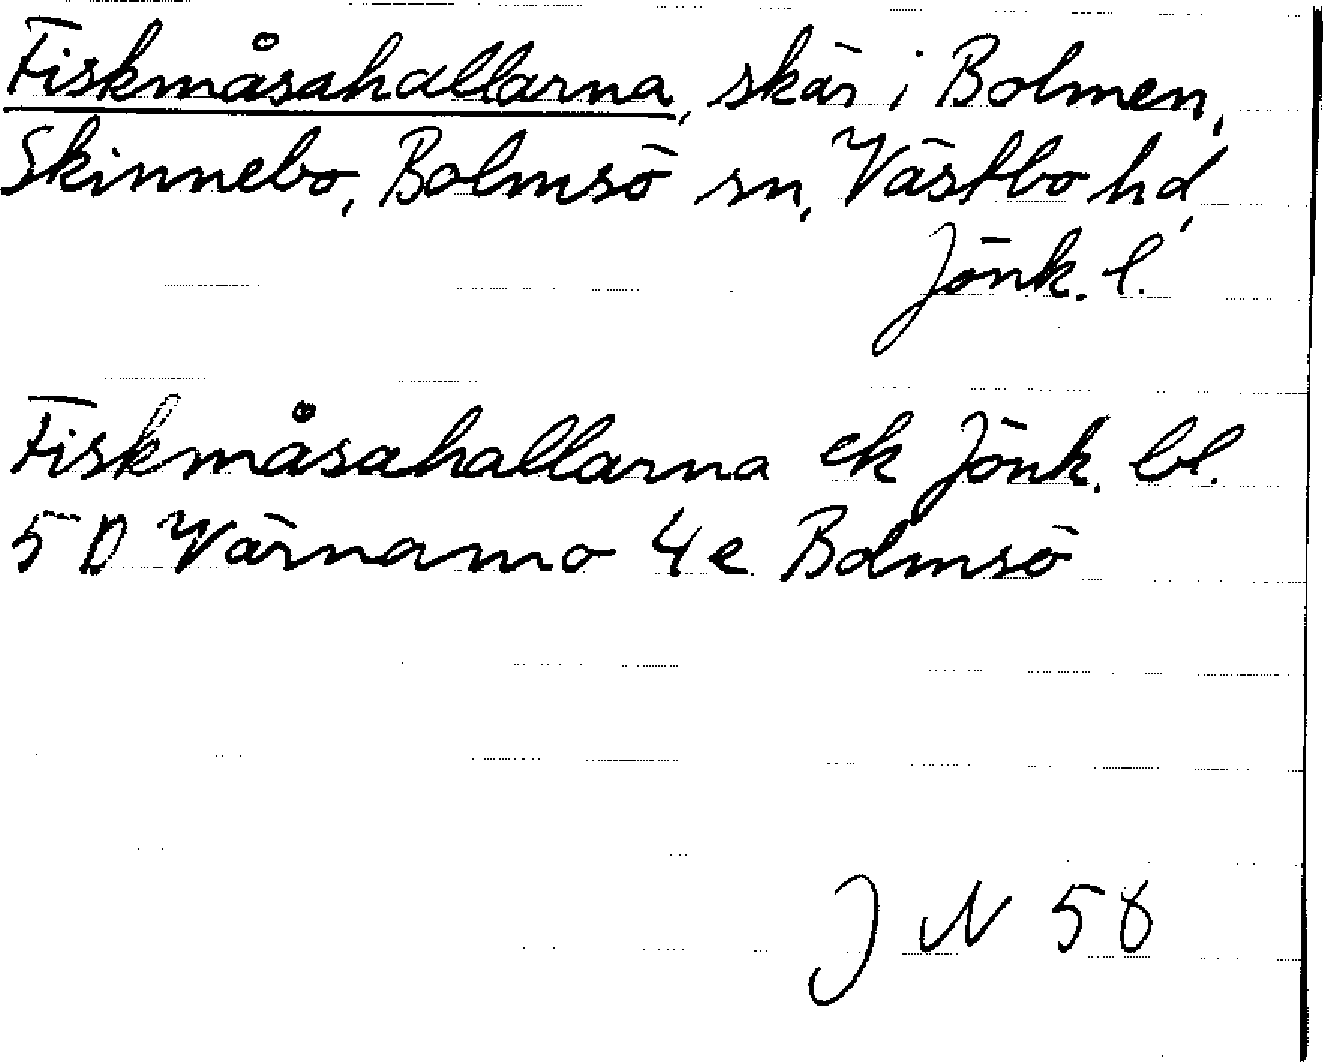 Fiskmåsahallarna, skär i Bolmen,
Skinnebo, Bolmsö sn, Västbo hd,
Jönk. l.
Fiskmåsahallarna ek Jönk. bl.
5 D Värnamo 4 e Bolmsö
J N 58